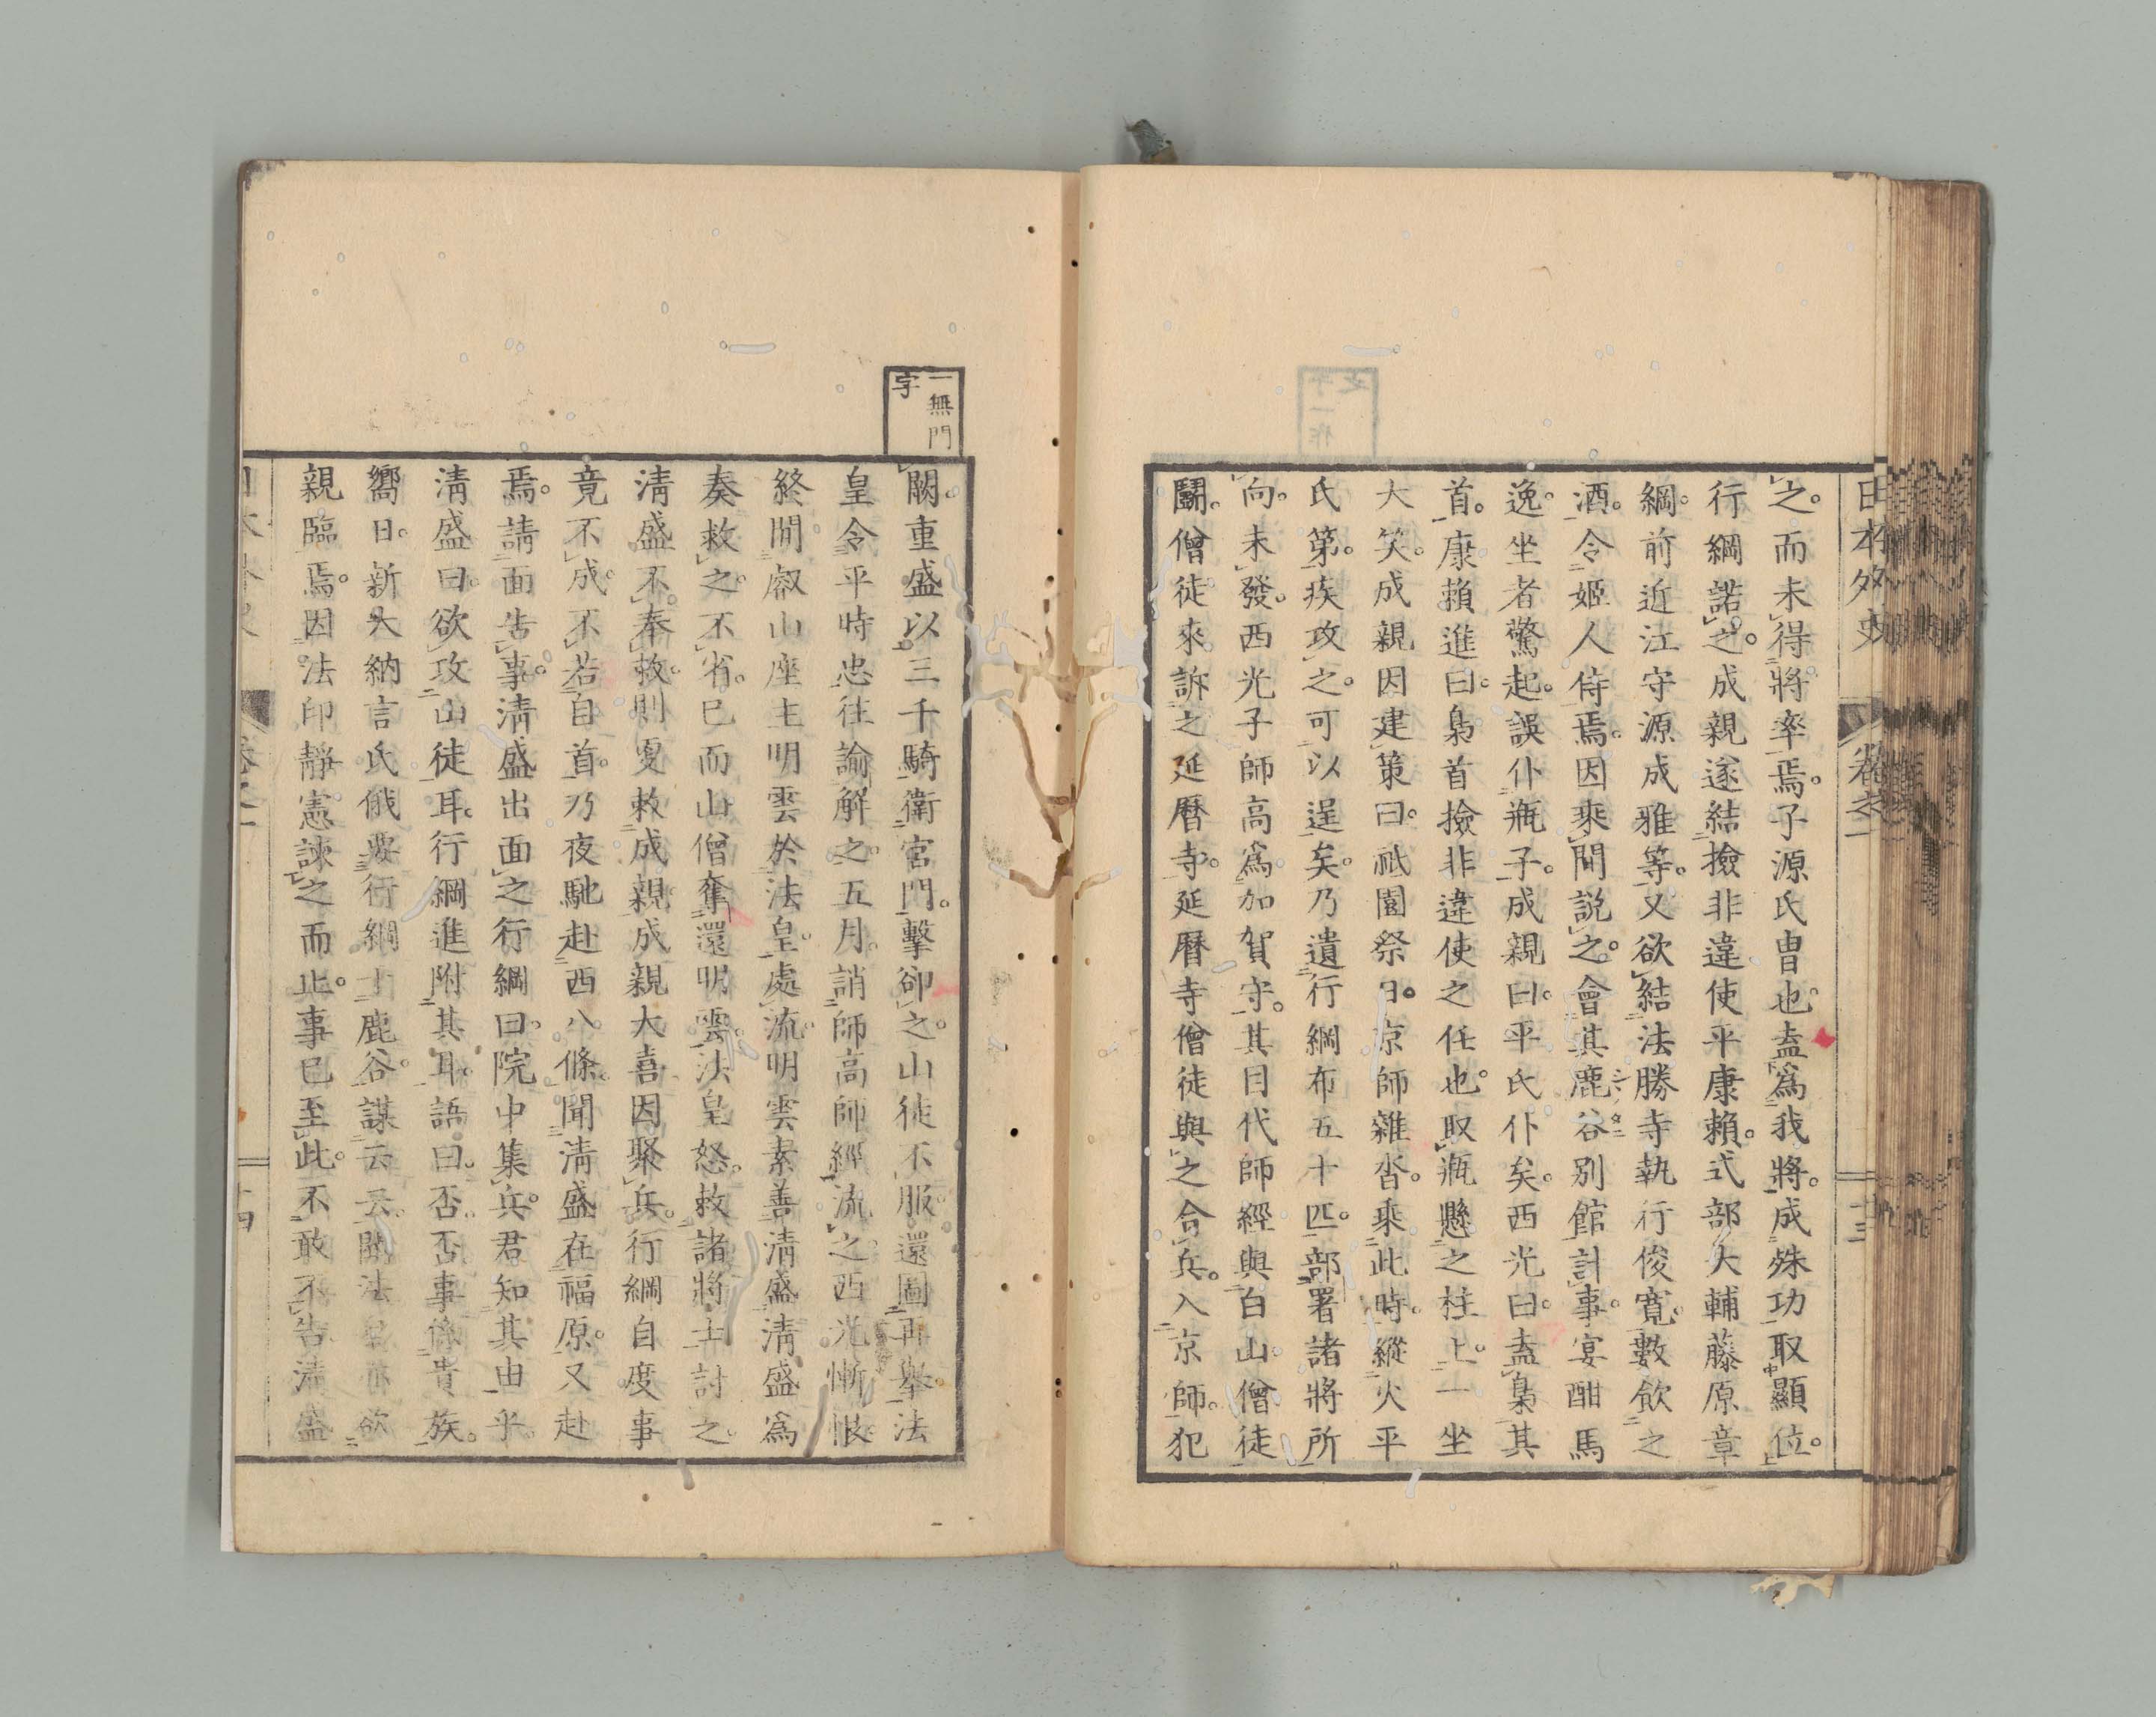 日本外史
卷之一
十三
之。而未得將率焉。子源氏冑也。盍爲我將。成殊功取顯位。
行綱諾之。成親遂結撿非違使平康賴。式部大輔藤原章
綱。前近江守源成雅等。又欲結法勝寺執行俊寬。數飮之
酒。令姬人侍焉。因乘間説之。會其鹿谷別館計事。宴酣馬
逸。坐者驚起。誤仆瓶子。成親曰。平氏仆矣。西光曰。盍梟其
首。康賴進曰。梟首撿非違使之任也。取瓶懸之柱上。一坐
大笑。成親因建策曰。祇園祭日。京師雜沓。乘此時。縱火平
氏第。疾攻之。可以逞矣。乃遺行綱布五十匹。部署諸將所
向。未發。西光子師高爲加賀守。其目代師經與白山僧徒
鬭。僧徒來訴之延曆寺。延曆寺僧徒與之合兵。入京師。犯
一無門
字
闕。重盛以三千騎衛宮門。擊卻之。山徒不服。還圖再擧。法
皇令平時忠往諭解之。五月。誚師高師經流之。西光慚恨。
終閒叡山座主明雲於法皇。處流。明雲素善淸盛。淸盛爲
奏救之。不省。已而山僧奪還明雲。法皇怒。敕諸將士討之。
淸盛不奉敕。則更敕成親。成親大喜。因聚兵。行綱自度事
竟不成。不若自首。乃夜馳赴西八條。聞淸盛在福原。又赴
焉。請面告事。淸盛出面之。行綱曰。院中集兵。君知其由乎。
淸盛曰。欲攻山徒耳。行綱進附其耳。語曰。否否。事係貴族。
嚮日。新大納言氏俄要行綱于鹿谷。謀云云。聞法皇亦欲
親臨焉。因法印靜憲諫之而止。事已至此。不敢不告。淸盛